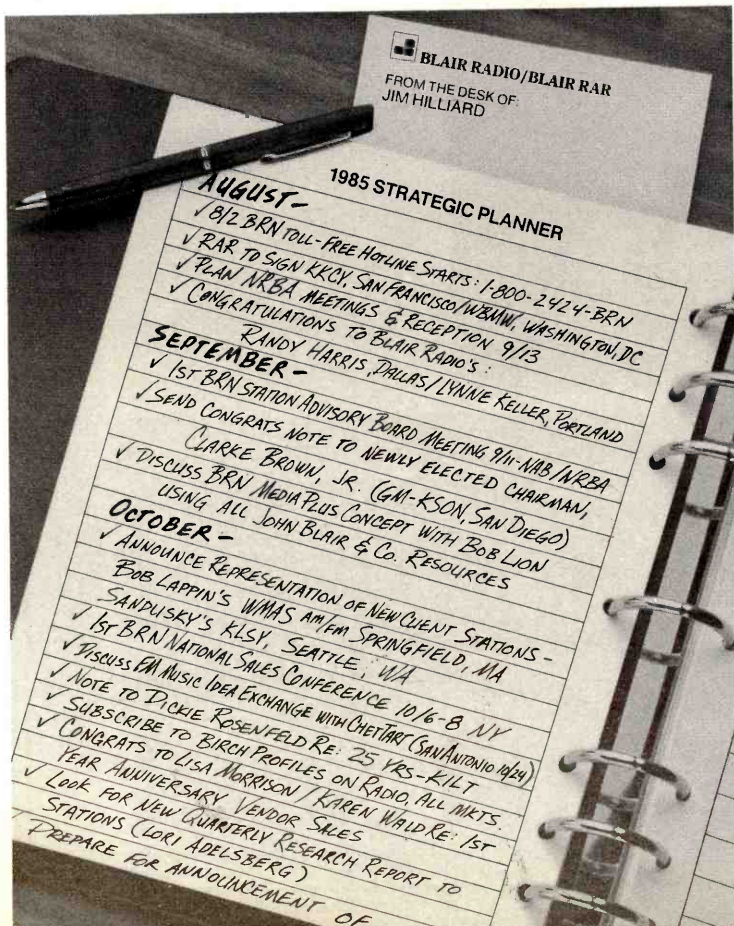 BLAIR RADIO/BLAIR RAR
FROM THE DESK OF:
JIM HILLIARD
1985 STRATEGIC PLANNER
AUGUST-
✓ 8/2 BRN TOLL-FREE HOTLINE STARTS: 1-800-2424-BRN
✓ RAR TO SIGN KKCY, SAN FRANCISCO/WBMW, WASHINGTON, DC
✓ PLAN NRBA MEETINGS & RECEPTION 9/13
✓ CONGRATULATIONS TO BLAIR RADIO'S:
RANDY HARRIS, DALLAS/LYNNE KELLER, PORTLAND
SEPTEMBER-
✓ 1ST BRN STATION ADVISORY BOARD MEETING 9/11-NAB/NRBA
✓ SEND CONGRATS NOTE TO NEWLY ELECTED CHAIRMAN,
CLARKE BROWN, JR. (GM-KSON, SAN DIEGO)
✓ DISCUSS BRN MEDIAPLUS CONCEPT WITH BOB LION
USING ALL JOHN BLAIR & CO. RESOURCES
OCTOBER-
✓ ANNOUNCE REPRESENTATION OF NEW CLIENT STATIONS-
BOB LAPPIN'S WMAS AM/FM SPRINGFIELD, MA
SANDUSKY'S KLSY, SEATTLE, WA
✓ 1ST BRN NATIONAL SALES CONFERENCE 10/6-8 NY
✓ DISCUSS FM MUSIC IDEA EXCHANGE WITH CHET TART (SAN ANTONIO 10/24)
✓ NOTE TO DICKIE ROSENFELD RE: 25 YRS-KILT
✓ SUBSCRIBE TO BIRCH PROFILES ON RADIO, ALL MKTS.
✓ CONGRATS TO LISA MORRISON/KAREN WALD RE: 1ST
YEAR ANNIVERSARY VENDOR SALES
✓ LOOK FOR NEW QUARTERLY RESEARCH REPORT TO
STATIONS (LORI ADELSBERG)
PREPARE FOR ANNOUNCEMENT OF